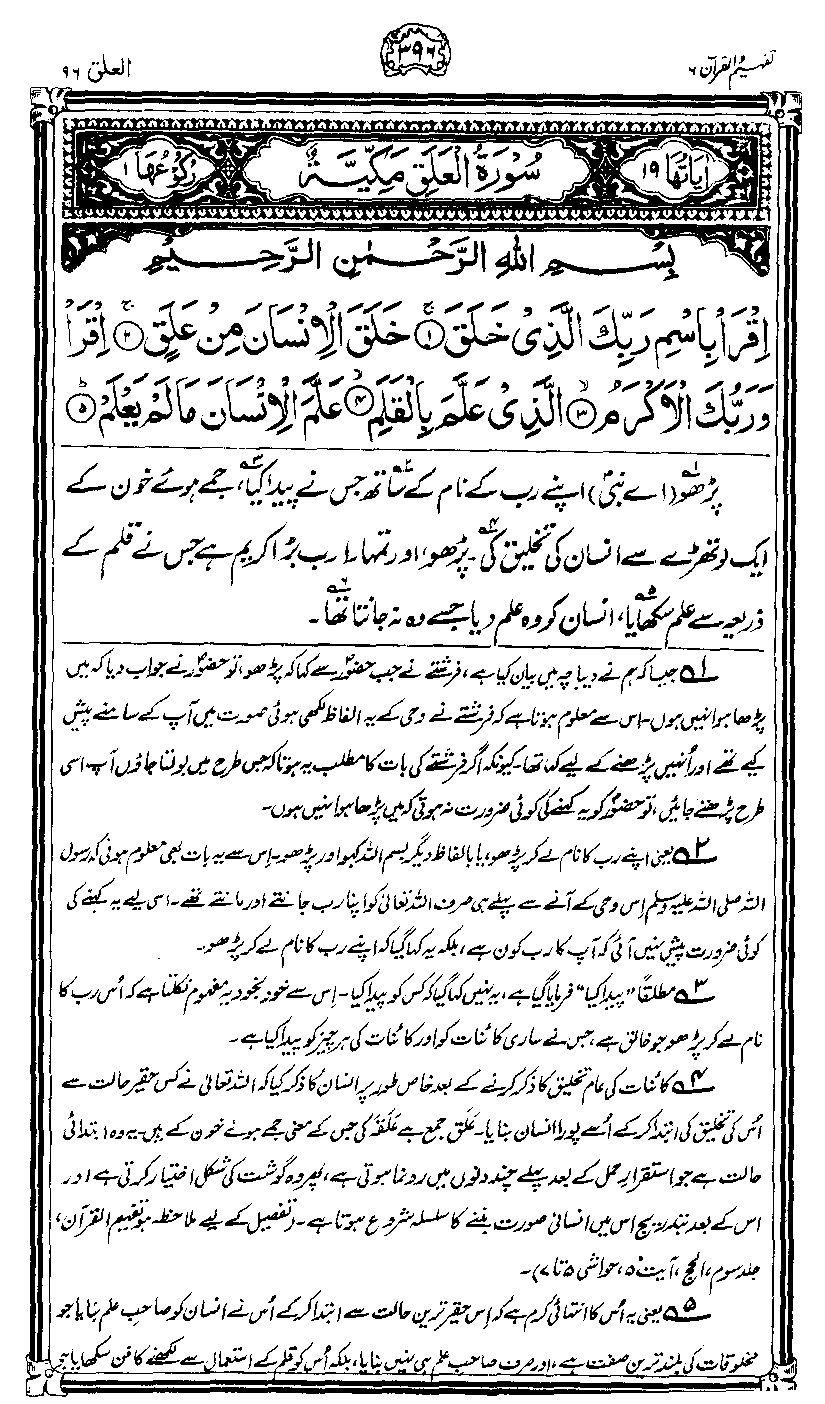 تفہیم القرآن ۶
۳۹۶
العلق ۹۶
اٰیَاتُهَا ۱۹
سُوْرَةُ الْعَلَقِ مَكِّيَّةٌ
رُكُوْعُهَا ۱
بِسْمِ اللهِ الرَّحْمٰنِ الرَّحِيْمِ
اِقْرَاْ بِاسْمِ رَبِّكَ الَّذِیْ خَلَقَ ۚ﴿۱﴾ خَلَقَ الْاِنْسَانَ مِنْ عَلَقٍ ۚ﴿۲﴾ اِقْرَاْ
وَ رَبُّكَ الْاَكْرَمُ ۙ﴿۳﴾ الَّذِیْ عَلَّمَ بِالْقَلَمِ ۙ﴿۴﴾ عَلَّمَ الْاِنْسَانَ مَا لَمْ یَعْلَمْ ؕ﴿۵﴾
پڑھو۱ (اے نبیؐ) اپنے رب کے نام کے ساتھ۲ جس نے پیدا کیا،۳ جمے ہوئے خون کے
ایک لوتھڑے سے انسان کی تخلیق کی۔۴ پڑھو، اور تمہارا رب بڑا کریم ہے جس نے قلم کے
ذریعہ سے علم سکھایا،۵ انسان کو وہ علم دیا جسے وہ نہ جانتا تھا۔۶
۱ جیسا کہ ہم نے دیباچہ میں بیان کیا ہے، فرشتے نے جب حضورؐ سے کہا کہ پڑھو، تو حضورؐ نے جواب دیا کہ میں
پڑھا ہوا نہیں ہوں۔ اس سے معلوم ہوتا ہے کہ فرشتے نے وحی کے یہ الفاظ لکھی ہوئی صورت میں آپ کے سامنے پیش
کیے تھے اور اُنہیں پڑھنے کے لیے کہا تھا۔ کیونکہ اگر فرشتے کی بات کا مطلب یہ ہوتا کہ جس طرح میں بولتا جاؤں آپ اسی
طرح پڑھتے جائیں، تو حضورؐ کو یہ کہنے کی کوئی ضرورت نہ ہوتی کہ میں پڑھا ہوا نہیں ہوں۔
۲ یعنی اپنے رب کا نام لے کر پڑھو، یا بالفاظ دیگر بسم اللہ کہو اور پڑھو۔ اِس سے یہ بات بھی معلوم ہوئی کہ رسول
اللہ صلی اللہ علیہ وسلم اِس وحی کے آنے سے پہلے ہی صرف اللہ تعالیٰ کو اپنا رب جانتے اور مانتے تھے۔ اسی لیے یہ کہنے کی
کوئی ضرورت پیش نہیں آئی کہ آپ کا رب کون ہے، بلکہ یہ کہا گیا کہ اپنے رب کا نام لے کر پڑھو۔
۳ مطلقاً "پیدا کیا" فرمایا گیا ہے، یہ نہیں کہا گیا کہ کس کو پیدا کیا۔ اِس سے خود بخود یہ مفہوم نکلتا ہے کہ اُس رب کا
نام لے کر پڑھو جو خالق ہے، جس نے ساری کائنات کو اور کائنات کی ہر چیز کو پیدا کیا ہے۔
۴ کائنات کی عام تخلیق کا ذکر کرنے کے بعد خاص طور پر انسان کا ذکر کیا کہ اللہ تعالیٰ نے کس حقیر حالت سے
اُس کی تخلیق کی ابتدا کر کے اُسے پورا انسان بنایا۔ عَلَق جمع ہے عَلَقَہ کی جس کے معنی جمے ہوئے خون کے ہیں۔ یہ وہ ابتدائی
حالت ہے جو استقرارِ حمل کے بعد پہلے چند دنوں میں رونما ہوتی ہے، پھر وہ گوشت کی شکل اختیار کرتی ہے اور
اس کے بعد بتدریج اس میں انسانی صورت بننے کا سلسلہ شروع ہوتا ہے۔ (تفصیل کے لیے ملاحظہ ہو تفہیم القرآن،
جلد سوم، الحج، آیت ۵، حواشی ۵ تا ۷)۔
۵ یعنی یہ اُس کا انتہائی کرم ہے کہ اِس حقیر ترین حالت سے ابتدا کر کے اُس نے انسان کو صاحبِ علم بنایا جو
مخلوقات کی بلند ترین صفت ہے، اور صرف صاحب علم ہی نہیں بنایا، بلکہ اُس کو قلم کے استعمال سے لکھنے کا فن سکھایا